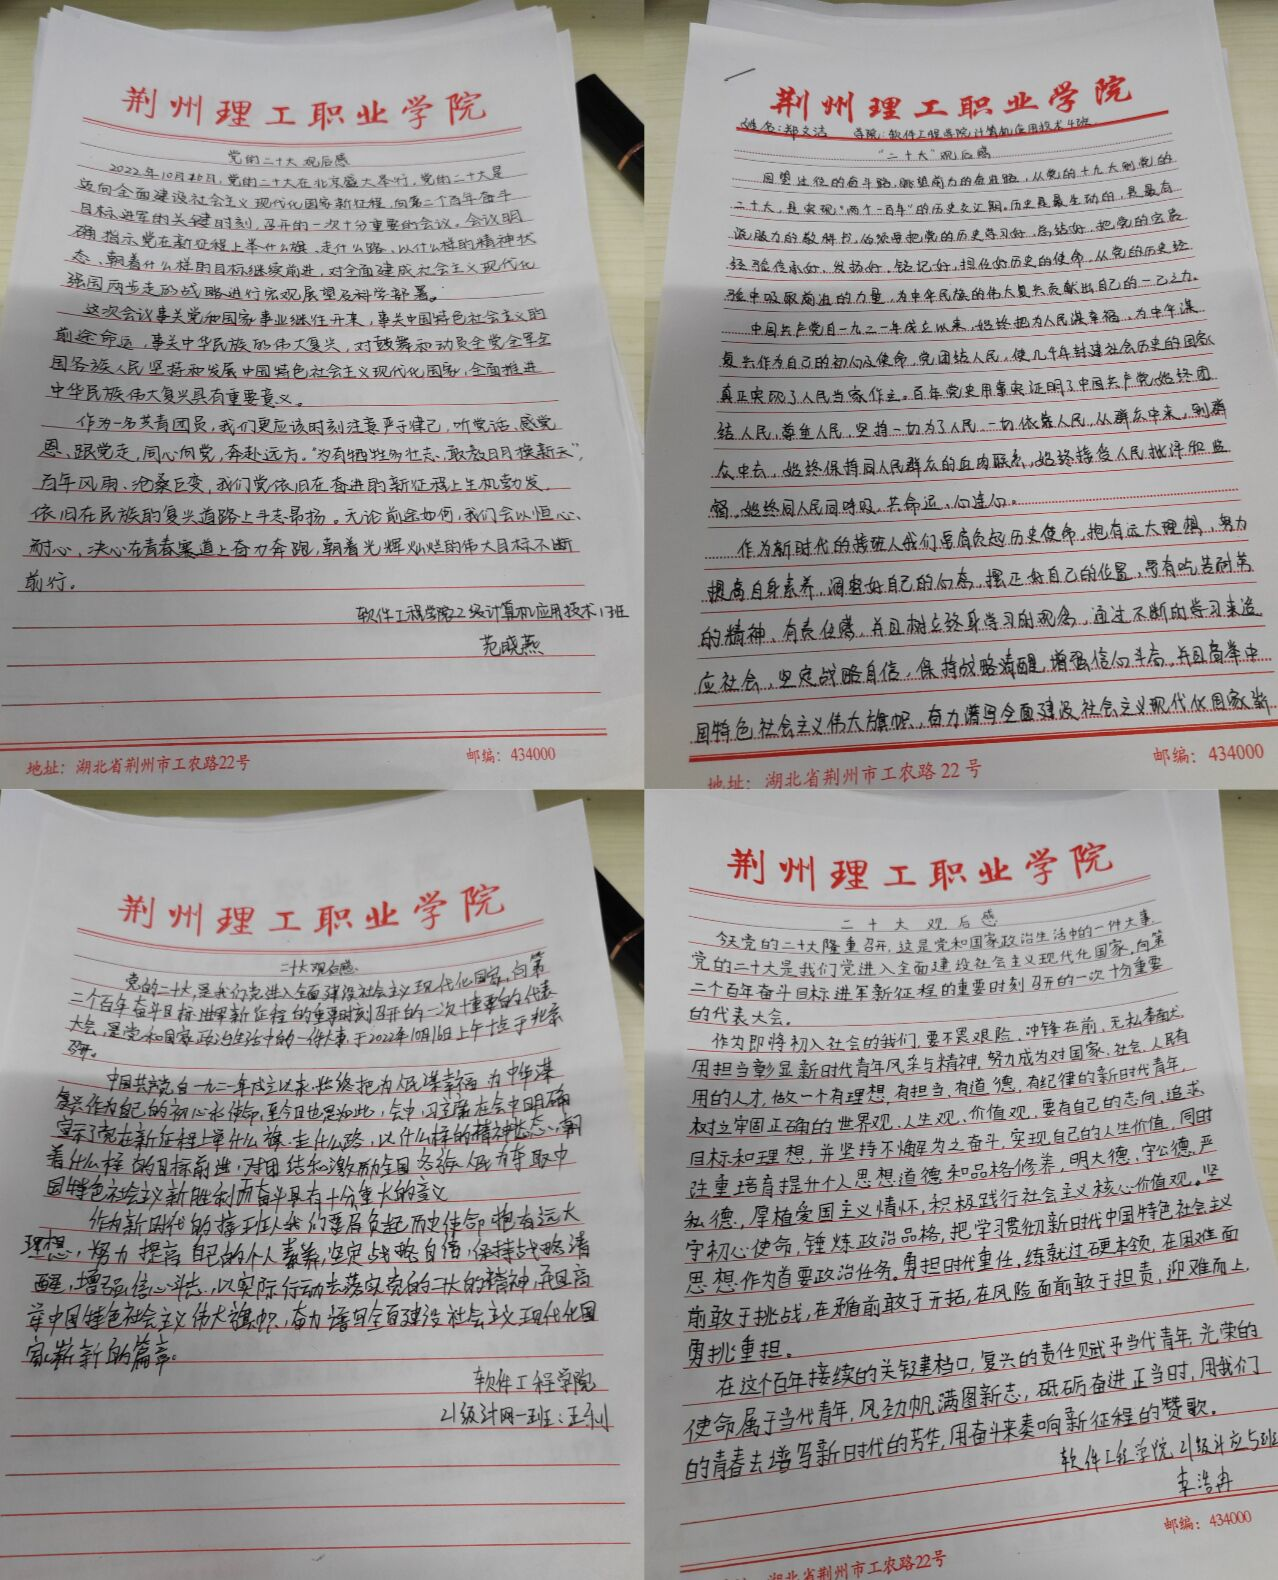 荆州理工职业学院
党的二十大观后感
2022年10月16日,党的二十大在北京盛大举行,党的二十大是
迈向全面建设社会主义现代化国家新征程,向第二个百年奋斗
目标进军的关键时刻,召开的一次十分重要的会议。会议明
确指示党在新征程上举什么旗、走什么路、以什么样的精神状
态、朝着什么样的目标继续前进,对全面建成社会主义现代化
强国两步走的战略进行宏观展望及科学部署。
这次会议事关党和国家事业继往开来,事关中国特色社会主义的
前途命运,事关中华民族的伟大复兴,对鼓舞和动员全党全军全
国各族人民坚持和发展中国特色社会主义现代化国家,全面推进
中华民族伟大复兴具有重要意义。
作为一名共青团员,我们更应该时刻注意严于律己,听党话、感党
恩、跟党走,同心向党,奔赴远方。“为有牺牲多壮志、敢教日月换新天”,
百年风雨、沧桑巨变,我们党依旧在奋进的新征程上生机勃发,
依旧在民族的复兴道路上斗志昂扬。无论前途如何,我们会以恒心、
耐心、决心在青春赛道上奋力奔跑,朝着光辉灿烂的伟大目标不断
前行。
软件工程学院22级计算机应用技术1班
范晓燕
地址:湖北省荆州市工农路22号
邮编:434000
荆州理工职业学院
姓名:郑文洁 学院:软件工程学院计算机应用技术4班
“二十大”观后感
回望过往的奋斗路,眺望前方的奋进路,从党的十九大到党的
二十大,是实现“两个一百年”的历史交汇期。历史是最生动的,是最有
说服力的教科书,必须要把党的历史学习好,总结好,把党的宝贵
经验传承好,发扬好,铭记好,担任好历史的使命,从党的历史经
验中吸取前进的力量,为中华民族的伟大复兴贡献出自己的一己之力。
中国共产党自一九二一年成立以来,始终把为人民谋幸福,为中华谋
复兴作为自己的初心及使命,党团结人民,使几千年封建社会历史的国家
真正实现了人民当家作主。百年党史用事实证明了中国共产党始终团
结人民,尊重人民,坚持一切为了人民,一切依靠人民,从群众中来,到群
众中去,始终保持同人民群众的血肉联系,始终接受人民批评和监
督,始终同人民同呼吸、共命运、心连心。
作为新时代的接班人我们要肩负起历史使命,抱有远大理想,努力
提高自身素养,调整好自己的心态,摆正好自己的位置,要有吃苦耐劳
的精神、有责任感,并且树立终身学习的观念,通过不断的学习来适
应社会,坚定战略自信,保持战略清醒,增强信心斗志,并且高举中
国特色社会主义伟大旗帜,奋力谱写全面建设社会主义现代化国家崭
地址:湖北省荆州市工农路22号
邮编:434000
荆州理工职业学院
二十大观后感
党的二十大,是我们党进入全面建设社会主义现代化国家,向第
二个百年奋斗目标进军新征程的重要时刻召开的一次十重要的代表
大会,是党和国家政治生活中的一件大事,于2022年10月16日上午十点于北京
召开。
中国共产党自一九二一年成立以来,始终把为人民谋幸福,为中华谋
复兴作为自己的初心永使命,至今日也是如此,会中,习主席在会中明确
宣示了党在新征程上举什么旗,走什么路,以什么样的精神状态,朝
着什么样的目标前进,对团结和激励全国各族人民为夺取中
国特色社会主义新胜利而奋斗具有十分重大的意义
作为新时代的接班人我们要肩负起历史使命,抱有远大
理想,努力提高自己的个人素养,坚定战略自信,保持战略清
醒,增强信心斗志,以实际行动去落实党的二十大的精神,并且高
举中国特色社会主义伟大旗帜,奋力谱写全面建设社会主义现代化国
家崭新的篇章。
软件工程学院
21级计网一班:王利
荆州理工职业学院
二十大观后感
今天党的二十大隆重召开,这是党和国家政治生活中的一件大事,
党的二十大是我们党进入全面建设社会主义现代化国家,向第
二个百年奋斗目标进军新征程的重要时刻召开的一次十分重要
的代表大会。
作为即将初入社会的我们,要不畏艰险,冲锋在前,无私奉献,
用担当彰显新时代青年风采与精神,努力成为对国家,社会,人民有
用的人才,做一个有理想,有担当,有道德,有纪律的新时代青年,
树立牢固正确的世界观,人生观,价值观,要有自己的志向,追求
目标和理想,并坚持不懈为之奋斗,实现自己的人生价值,同时
注重培育提升个人思想道德和品格修养,明大德,守公德,严
私德,厚植爱国主义情怀,积极践行社会主义核心价值观。坚
守初心使命,锤炼政治品格,把学习贯彻新时代中国特色社会主义
思想作为首要政治任务。勇担时代重任,练就过硬本领,在困难面
前敢于挑战,在矛盾前敢于开拓,在风险面前敢于担责,迎难而上,
勇挑重担。
在这个百年接续的关键档口,复兴的责任赋予当代青年,光荣的
使命属于当代青年,风劲帆满图新志,砥砺奋进正当时,用我们
的青春去谱写新时代的芳华,用奋斗来奏响新征程的赞歌。
软件工程学院21级计应5班
李浩冉
邮编:434000
湖北省荆州市工农路22号